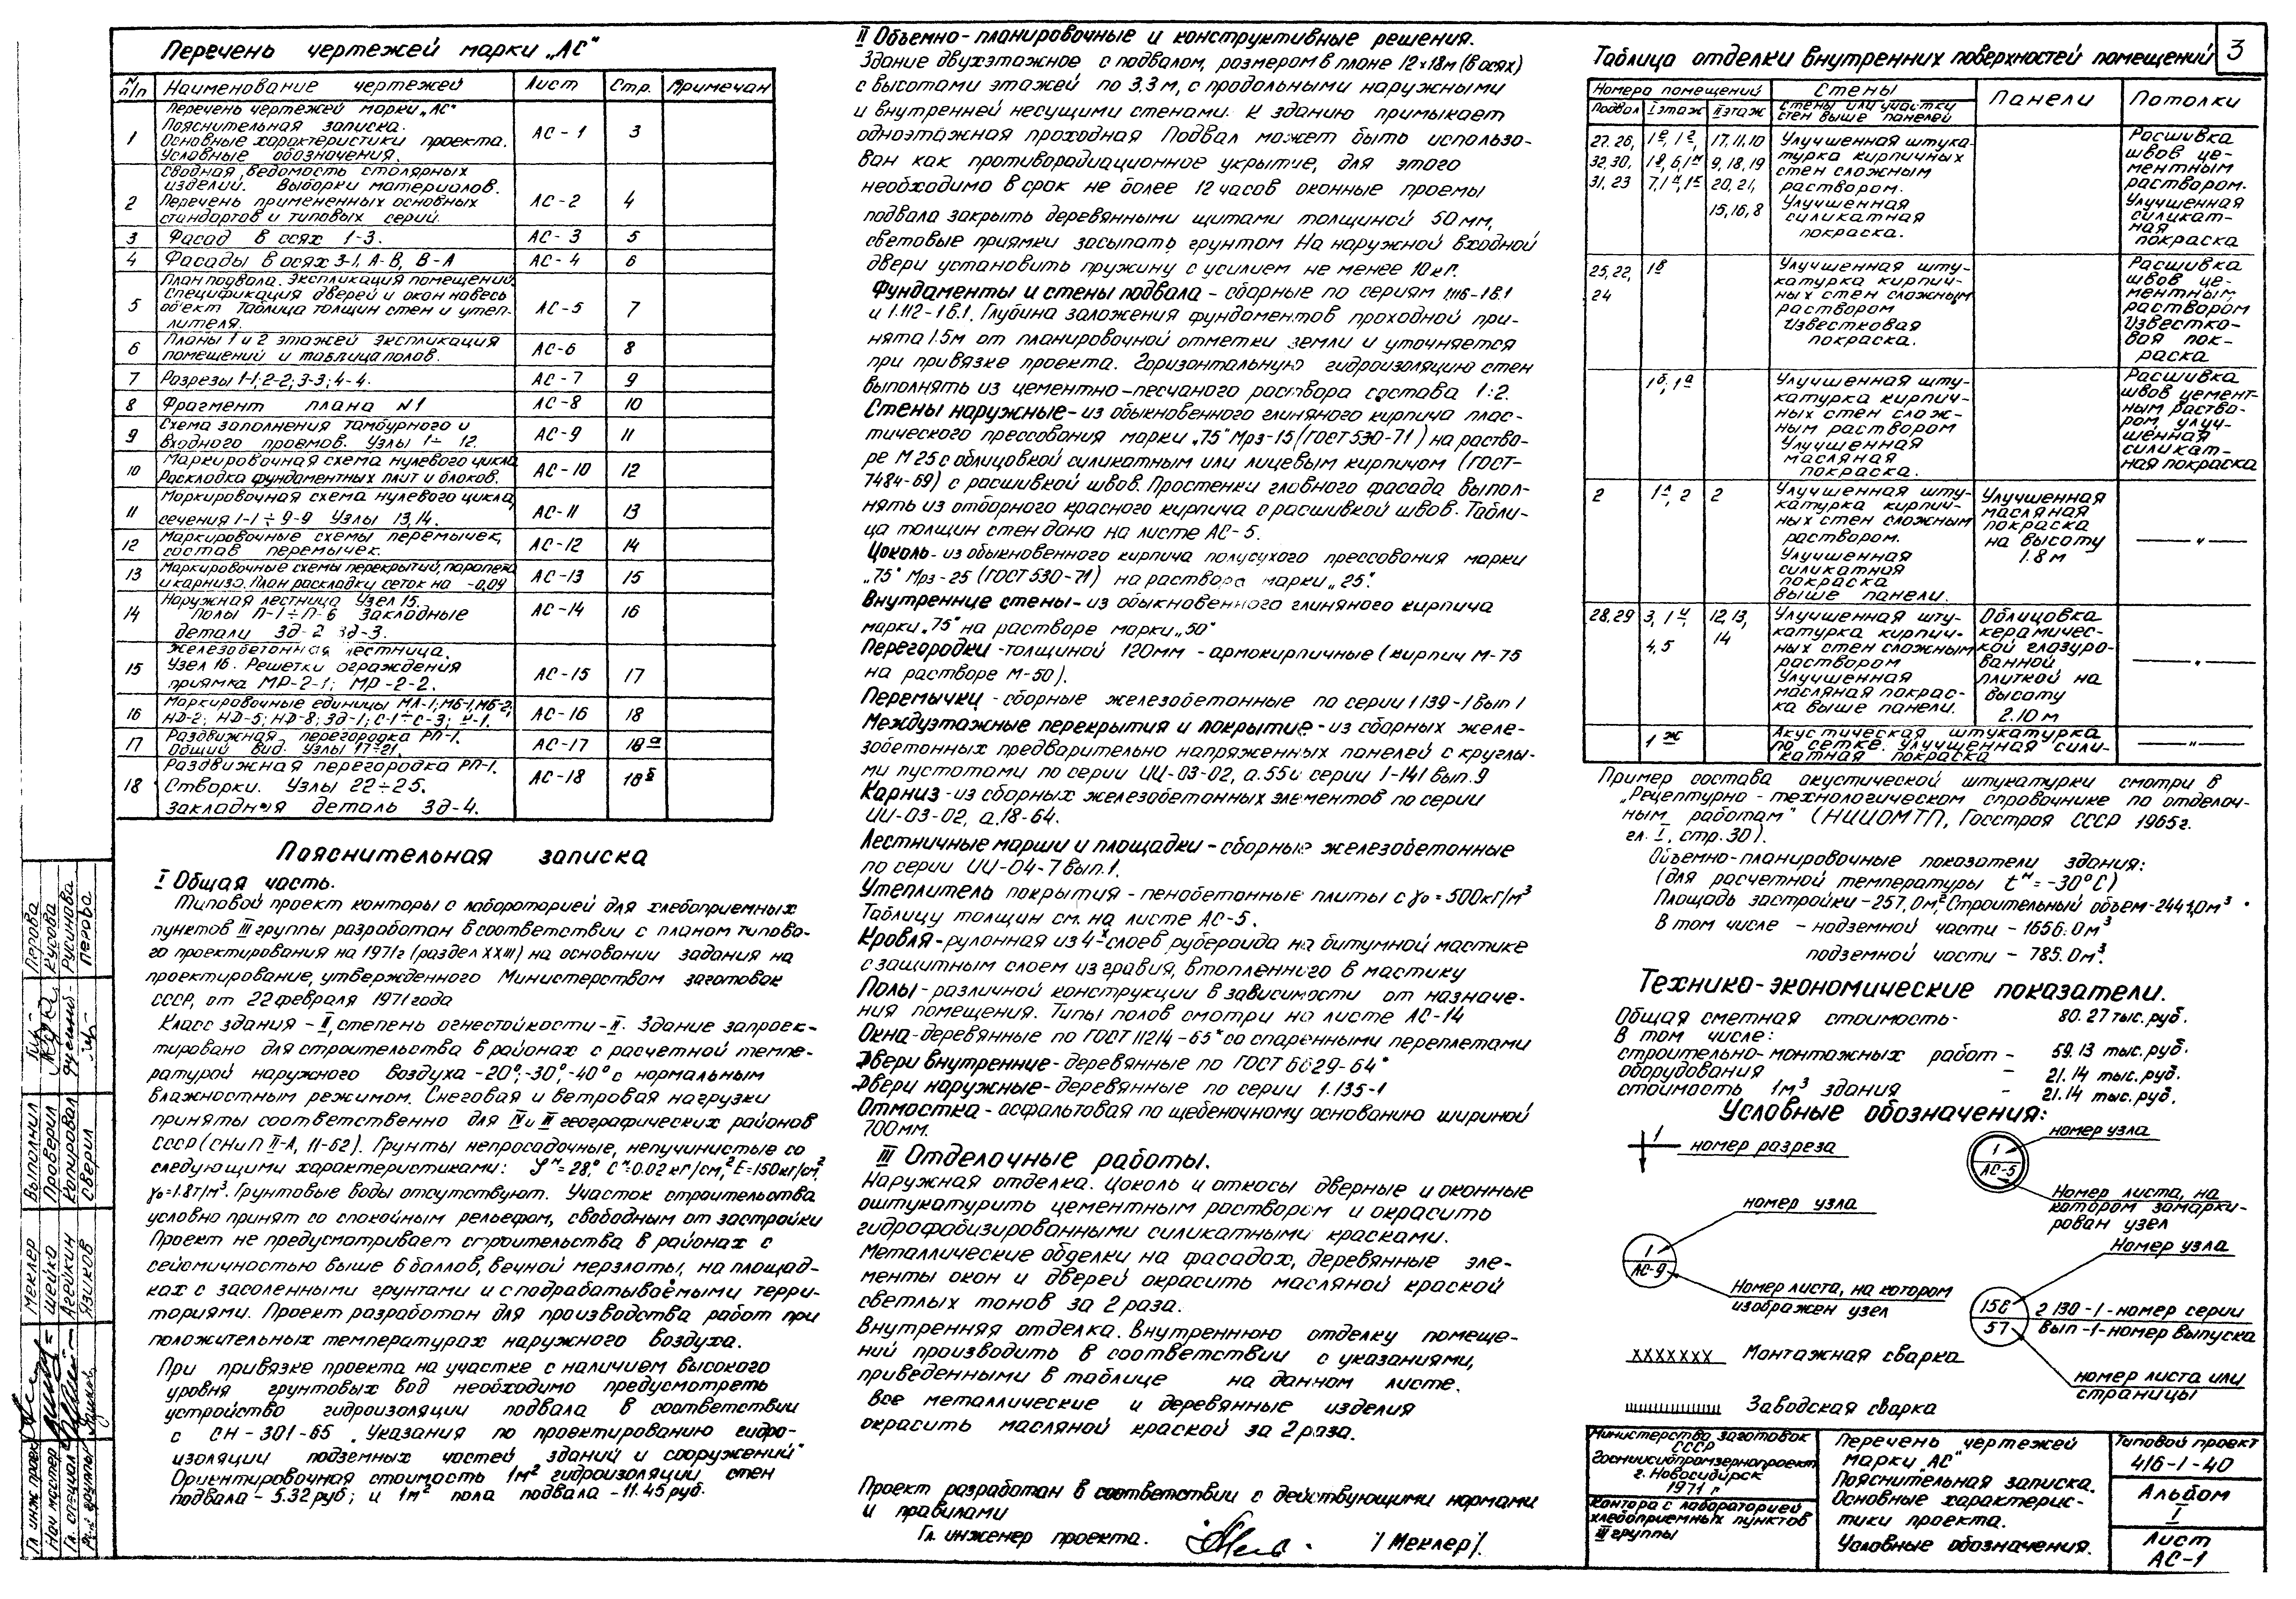 3
Перечень чертежей марки „АС"
№ п/п Наименование чертежей Лист Стр. Примечан
1 Перечень чертежей марки „АС"
Пояснительная записка.
Основные характеристики проекта.
Условные обозначения. АС-1 3
2 Сводная ведомость столярных
изделий. Выборки материалов.
Перечень примененных основных
стандартов и типовых серий. АС-2 4
3 Фасад в осях 1-3. АС-3 5
4 Фасады в осях 3-1, А-В, В-А АС-4 6
5 План подвала. Экспликация помещений.
Спецификация дверей и окон на весь
об'ект Таблица толщин стен и утеп-
лителя. АС-5 7
6 Планы 1 и 2 этажей Экспликация
помещений и таблица полов. АС-6 8
7 Разрезы 1-1; 2-2; 3-3; 4-4. АС-7 9
8 Фрагмент плана №1 АС-8 10
9 Схема заполнения тамбурного и
входного проемов. Узлы 1÷12. АС-9 11
10 Маркировочная схема нулевого цикла
Раскладка фундаментных плит и блоков. АС-10 12
11 Маркировочная схема нулевого цикла,
сечения 1-1÷9-9 Узлы 13,14. АС-11 13
12 Маркировочные схемы перемычек,
состав перемычек. АС-12 14
13 Маркировочные схемы перекрытий, парапета
и карниза. План раскладки сеток на -0,09 АС-13 15
14 Наружная лестница Узел 15.
Полы П-1÷П-6 Закладные
детали ЗД-2 ЗД-3. АС-14 16
15 Железобетонная лестница.
Узел 16. Решетки ограждения
приямка МР-2-1; МР-2-2. АС-15 17
16 Маркировочные единицы МЛ-1; МБ-1, МБ-2;
НД-2; НД-5; НД-8; ЗД-1; С-1÷С-3; И-1. АС-16 18
17 Раздвижная перегородка РП-1.
Общий вид. Узлы 17÷21. АС-17 18а
18 Раздвижная перегородка РП-1.
Створки. Узлы 22÷25.
закладная деталь ЗД-4. АС-18 18б
Пояснительная записка
I Общая часть.
Типовой проект конторы с лабораторией для хлебоприемных
пунктов III группы разработан в соответствии с планом типово-
го проектирования на 1971г (раздел XXIII) на основании задания на
проектирование, утвержденного Министерством заготовок
СССР, от 22 февраля 1971 года
Класс здания - II, степень огнестойкости - II. Здание запроек-
тировано для строительства в районах с расчетной темпе-
ратурой наружного воздуха -20°, -30°, -40° с нормальным
влажностным режимом. Снеговая и ветровая нагрузки
приняты соответственно для IV и III географических районов
СССР (СНиП II-А, 11-62). Грунты непросадочные, непучинистые со
следующими характеристиками: φн=28°, Сн=0.02 кг/см², Е=150кг/см²,
γ₀=1.8т/м³. Грунтовые воды отсутствуют. Участок строительства
условно принят со спокойным рельефом, свободным от застройки
Проект не предусматривает строительства в районах с
сейсмичностью выше 6 баллов, вечной мерзлоты, на площад-
ках с засоленными грунтами и с подрабатываемыми терри-
ториями. Проект разработан для производства работ при
положительных температурах наружного воздуха.
При привязке проекта на участке с наличием высокого
уровня грунтовых вод необходимо предусмотреть
устройство гидроизоляции подвала в соответствии
с СН-301-65 „Указания по проектированию гидро-
изоляции подземных частей зданий и сооружений"
Ориентировочная стоимость 1м² гидроизоляции стен
подвала - 5.32 руб; и 1м² пола подвала - 11.45 руб.
II Объемно-планировочные и конструктивные решения.
Здание двухэтажное с подвалом, размером в плане 12х18м (в осях)
с высотами этажей по 3.3 м, с продольными наружными
и внутренней несущими стенами. К зданию примыкает
одноэтажная проходная Подвал может быть использо-
ван как противорадиационное укрытие, для этого
необходимо в срок не более 12 часов оконные проемы
подвала закрыть деревянными щитами толщиной 50 мм,
световые приямки засыпать грунтом На наружной входной
двери установить пружину с усилием не менее 10 кг.
Фундаменты и стены подвала - сборные по сериям 1116-1 в.1
и 1.112-1 в.1. Глубина заложения фундаментов проходной при-
нята 1.5м от планировочной отметки земли и уточняется
при привязке проекта. Горизонтальную гидроизоляцию стен
выполнять из цементно-песчаного раствора состава 1:2.
Стены наружные - из обыкновенного глиняного кирпича плас-
тического прессования марки „75" Мрз-15 (ГОСТ 530-71) на раство-
ре М 25 с облицовкой силикатным или лицевым кирпичом (ГОСТ-
7484-69) с расшивкой швов. Простенки главного фасада выпол-
нять из отборного красного кирпича с расшивкой швов. Табли-
ца толщин стен дана на листе АС-5.
Цоколь - из обыкновенного кирпича полусухого прессования марки
„75" Мрз-25 (ГОСТ 530-71) на растворе марки „25".
Внутренние стены - из обыкновенного глиняного кирпича
марки „75" на растворе марки „50"
Перегородки - толщиной 120мм - армокирпичные (кирпич М-75
на растворе М-50).
Перемычки - сборные железобетонные по серии 1 139-1 вып 1
Междуэтажные перекрытия и покрытие - из сборных желе-
зобетонных предварительно напряженных панелей с круглы-
ми пустотами по серии ИИ-03-02, а.55 и серии 1-141 вып. 9
Карниз - из сборных железобетонных элементов по серии
ИИ-03-02, а.18-64.
Лестничные марши и площадки - сборные железобетонные
по серии ИИ-04-7 вып. 1.
Утеплитель покрытия - пенобетонные плиты с γ₀=500кг/м³
Таблицу толщин см. на листе АС-5.
Кровля - рулонная из 4х слоев рубероида на битумной мастике
с защитным слоем из гравия, втопленного в мастику
Полы - различной конструкции в зависимости от назначе-
ния помещения. Типы полов смотри на листе АС-14
Окна - деревянные по ГОСТ 11214-65* со спаренными переплетами
Двери внутренние - деревянные по ГОСТ 6629-64*
Двери наружные - деревянные по серии 1.135-1
Отмостка - асфальтовая по щебеночному основанию шириной
700мм.
III Отделочные работы.
Наружная отделка. Цоколь и откосы дверные и оконные
оштукатурить цементным раствором и окрасить
гидрофабизированными силикатными красками.
Металлические обделки на фасадах, деревянные эле-
менты окон и дверей окрасить масляной краской
светлых тонов за 2 раза.
Внутренняя отделка. Внутреннюю отделку помеще-
ний производить в соответствии с указаниями,
приведенными в таблице на данном листе.
Все металлические и деревянные изделия
окрасить масляной краской за 2 раза.
Проект разработан в соответствии с действующими нормами
и правилами
Гл. инженер проекта. /Меклер/.
Таблица отделки внутренних поверхностей помещений
Номера помещений Стены Панели Потолки
Подвал I этаж II этаж Стены или участки
стен выше панелей
27, 26, 32, 30, 31, 23
17, 11, 10 9, 18, 19 20, 21, 15, 16, 8
Улучшенная штука-
турка кирпичных
стен сложным
раствором.
Улучшенная
силикатная
покраска.
Расшивка
швов це-
ментным
раствором.
Улучшенная
силикат-
ная
покраска
25, 22, 24 1в
Улучшенная шту-
катурка кирпич-
ных стен сложным
раствором
Известковая
покраска.
Расшивка
швов це-
ментным
раствором
Известко-
вая пок-
раска
1б, 1а
Улучшенная шту-
катурка кирпич-
ных стен слож-
ным раствором
Улучшенная
масляная
покраска.
Расшивка
швов цемент-
ным раство-
ром, улуч-
шенная
силикат-
ная покраска
2 1л, 2 2
Улучшенная шту-
катурка кирпич-
ных стен сложным
раствором.
Улучшенная
силикатная
покраска
выше панели.
Улучшенная
масляная
покраска
на высоту
1.8 м
— „ —
28, 29 3, 1и, 4, 5 12, 13, 14
Улучшенная шту-
катурка кирпич-
ных стен сложным
раствором
Улучшенная
масляная покрас-
ка выше панели.
Облицовка
керамичес-
кой глазуро-
ванной
плиткой на
высоту
2.10 м
— „ —
1ж
Акустическая штукатурка
по сетке. Улучшенная сили-
катная покраска
— „ —
Пример состава акустической штукатурки смотри в
„Рецептурно-технологическом справочнике по отделоч-
ным работам" (НИИОМТП, Госстроя СССР 1965г.
гл. I, стр. 30).
Объемно-планировочные показатели здания:
(для расчетной температуры tн=-30°С)
Площадь застройки - 257,0м², Строительный объем - 2441,0м³
В том числе - надземной части - 1656.0м³
подземной части - 785.0м³.
Технико-экономические показатели.
Общая сметная стоимость- 80.27 тыс. руб.
В том числе:
строительно-монтажных работ - 59.13 тыс. руб.
оборудования - 21.14 тыс. руб.
стоимость 1м³ здания - 21.14 тыс. руб.
Условные обозначения:
1
номер разреза
номер узла
1
АС-5
Номер листа, на
котором замарки-
рован узел
номер узла
1
АС-9
Номер листа, на котором
изображен узел
Номер узла
156
57
2 130-1-номер серии
вып-1-номер выпуска
номер листа или
страницы
ххххххх Монтажная сварка
Заводская сварка
Министерство заготовок
СССР
Госниисибпромзернопроект
г. Новосибирск
1971 г
Контора с лабораторией
хлебоприемных пунктов
III группы
Перечень чертежей
марки „АС"
Пояснительная записка.
Основные характерис-
тики проекта.
Условные обозначения.
Типовой проект
416-1-40
Альбом
I
Лист
АС-1
Гл. инж. проек. Меклер Выполнил Перова
Нач мастер. Шейка Проверил Кусова
Гл. специал Агейкин Копировал Русинова
Рук. группы Языков Сверил Перова